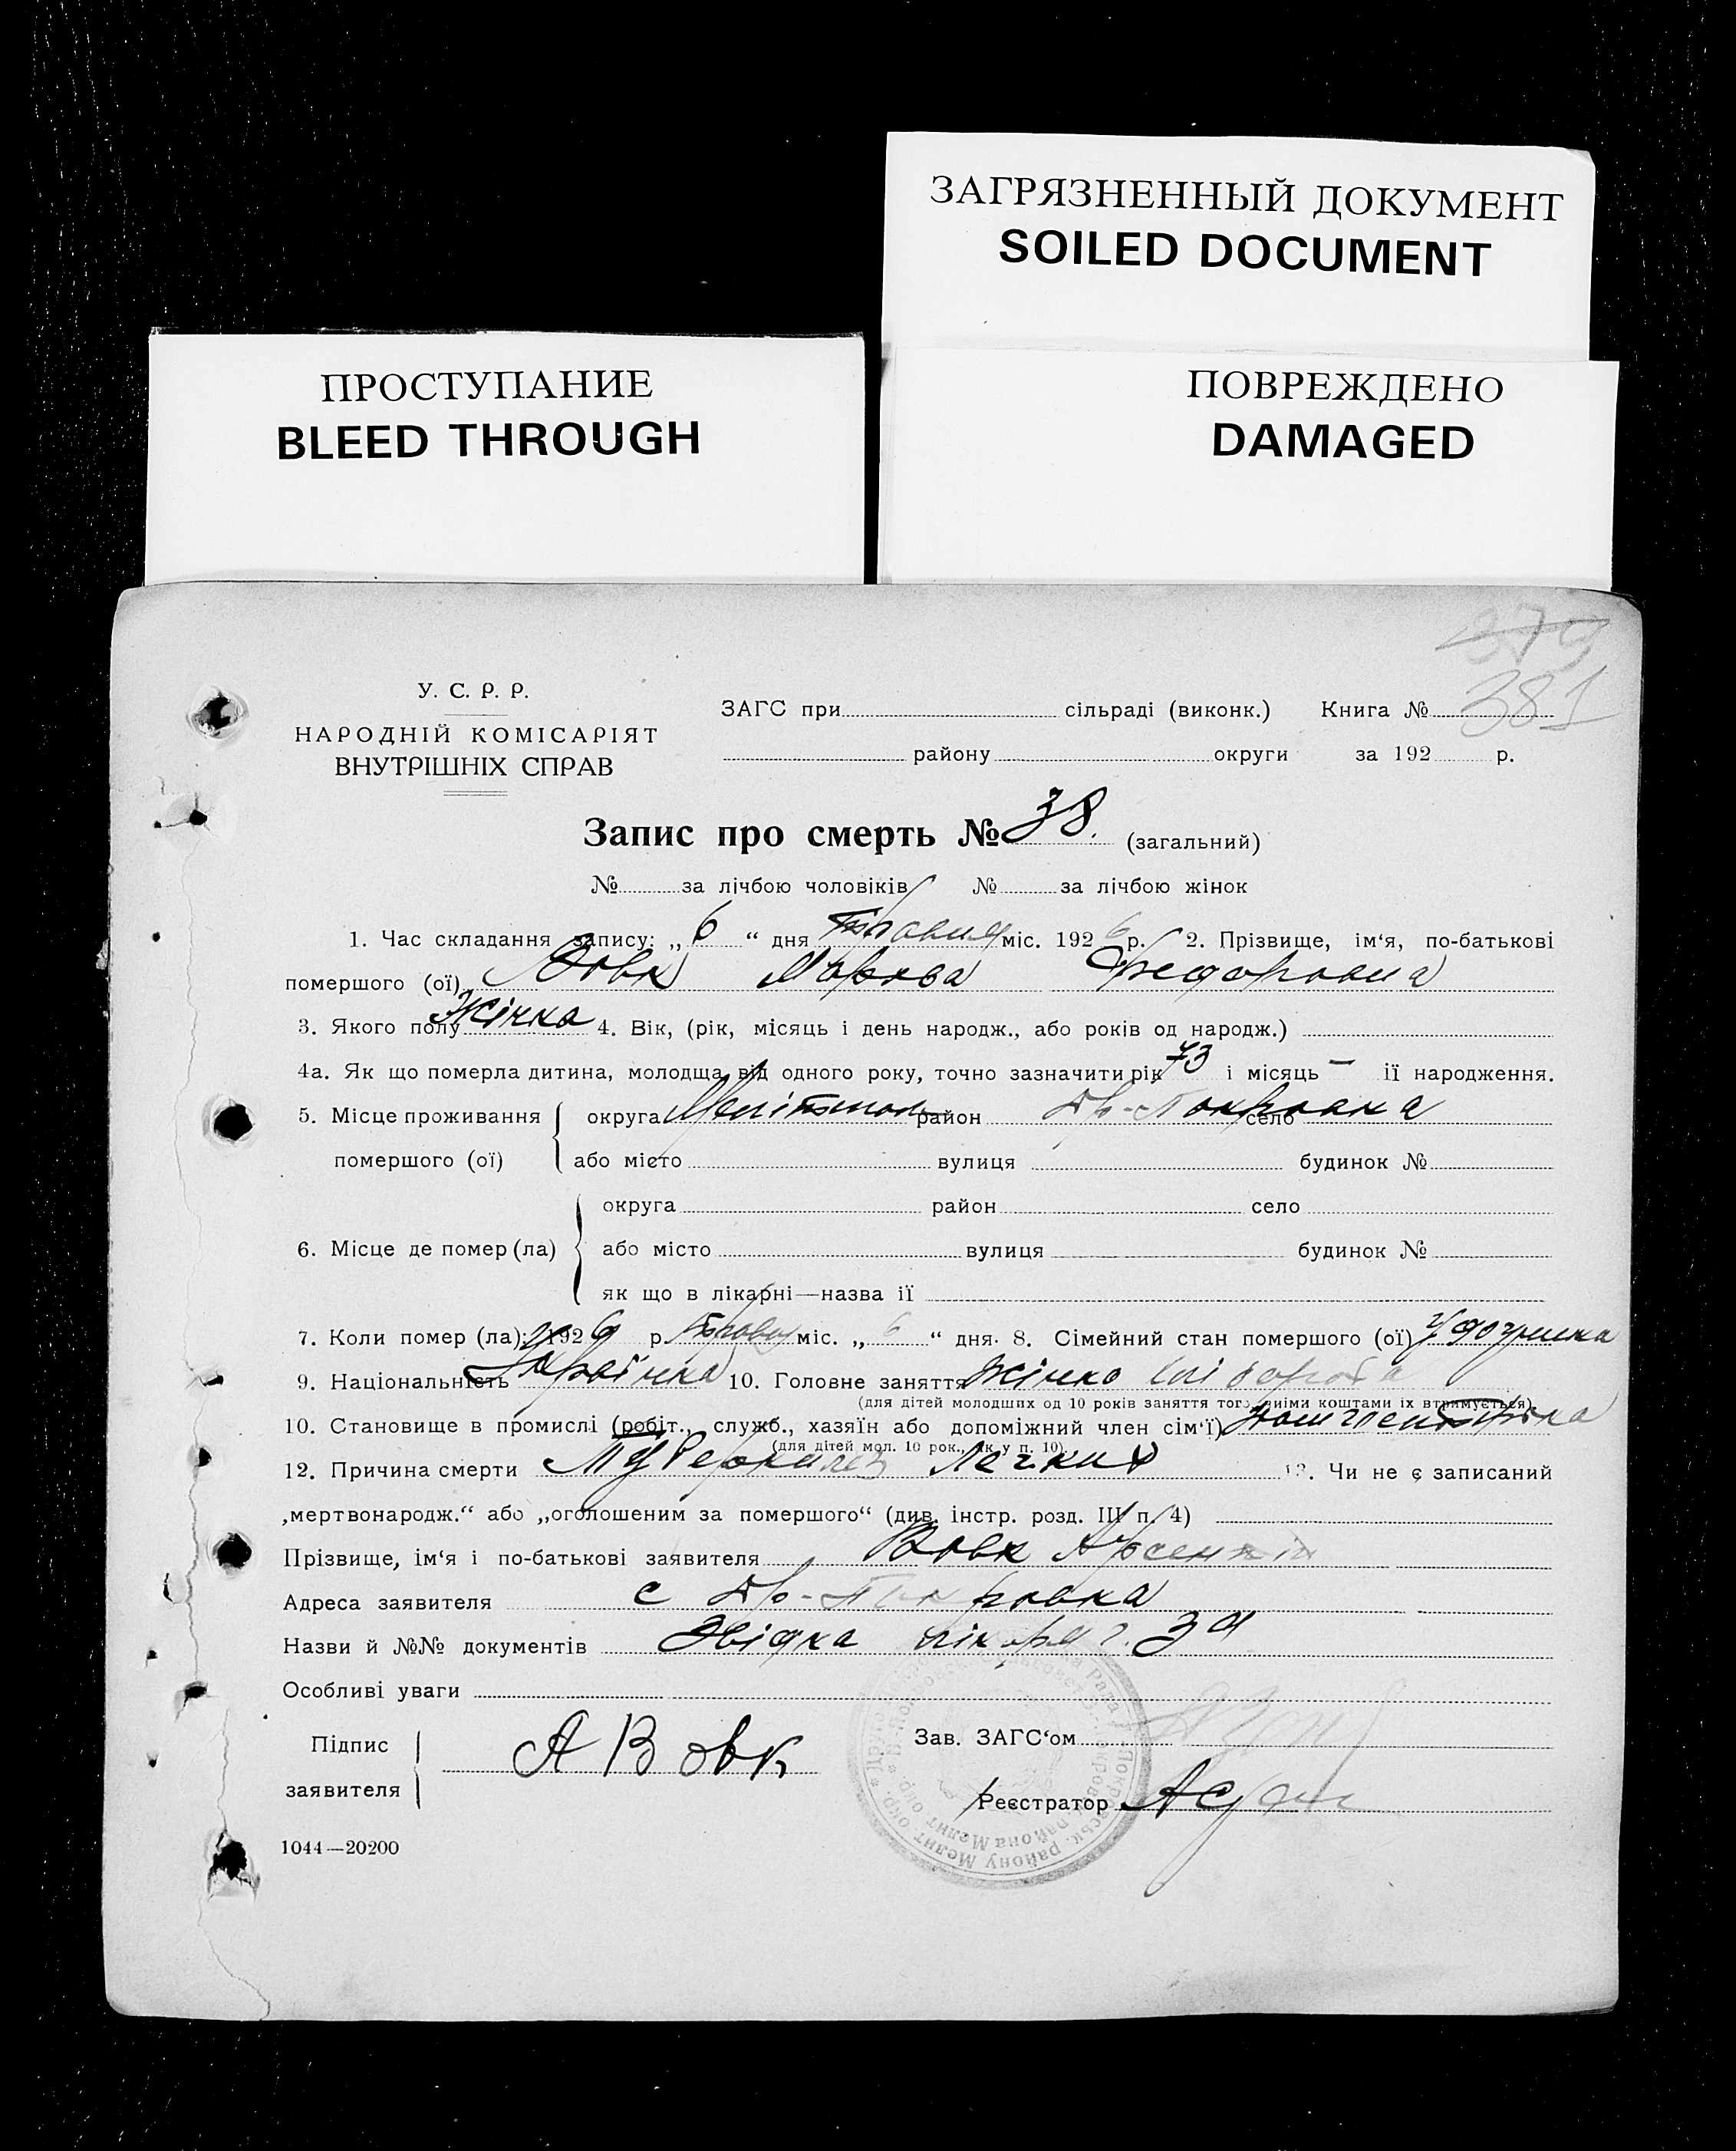 ЗАГРЯЗНЕННЫЙ ДОКУМЕНТ
SOILED DOCUMENT
ПРОСТУПАНИЕ
BLEED THROUGH
ПОВРЕЖДЕНО
DAMAGED
379
381
У. С. Р. Р.
НАРОДНІЙ КОМІСАРІЯТ
ВНУТРІШНІХ СПРАВ
ЗАГС при сільраді (виконк.) Книга №
району округи за 192 р.
Запис про смерть № 38. (загальний)
№ за лічбою чоловіків № за лічбою жінок
1. Час складання запису: „ 6 “ дня Травня міс. 192 6 р. 2. Прізвище, ім‘я, по-батькові
помершого (ої) Вовк Марква Федоровна
3. Якого полу Жінка 4. Вік, (рік, місяць і день народж., або років од народж.)
4а. Як що померла дитина, молодща від одного року, точно зазначити рік 73 і місяць — її народження.
5. Місце проживання округа Мелітополь район Др-Покровка село
помершого (ої) або місто вулиця будинок №
округа район село
6. Місце де помер (ла) або місто вулиця будинок №
як що в лікарні—назва її
7. Коли помер (ла): 192 6 р. Травня міс. „ 6 “ дня. 8. Сімейний стан помершого (ої)
9. Національність Українка 10. Головне заняття Жінка хлібороба
(для дітей молодших од 10 років заняття того, чиїми коштами їх втримується)
10. Становище в промислі (робіт., служб., хазяїн або допоміжний член сім‘ї)
(для дітей мол. 10 рок., як у п. 10)
12. Причина смерти Туберкилез Легких 13. Чи не є записаний
„мертвонародж.“ або „оголошеним за помершого“ (див. інстр. розд. III п. 4)
Прізвище, ім‘я і по-батькові заявителя Вовк Арсентій
Адреса заявителя с Др-Покровка
Назви й №№ документів Звідка лікаря
Особливі уваги
Підпис
заявителя
А Вовк
Зав. ЗАГС‘ом
Реєстратор
1044—20200